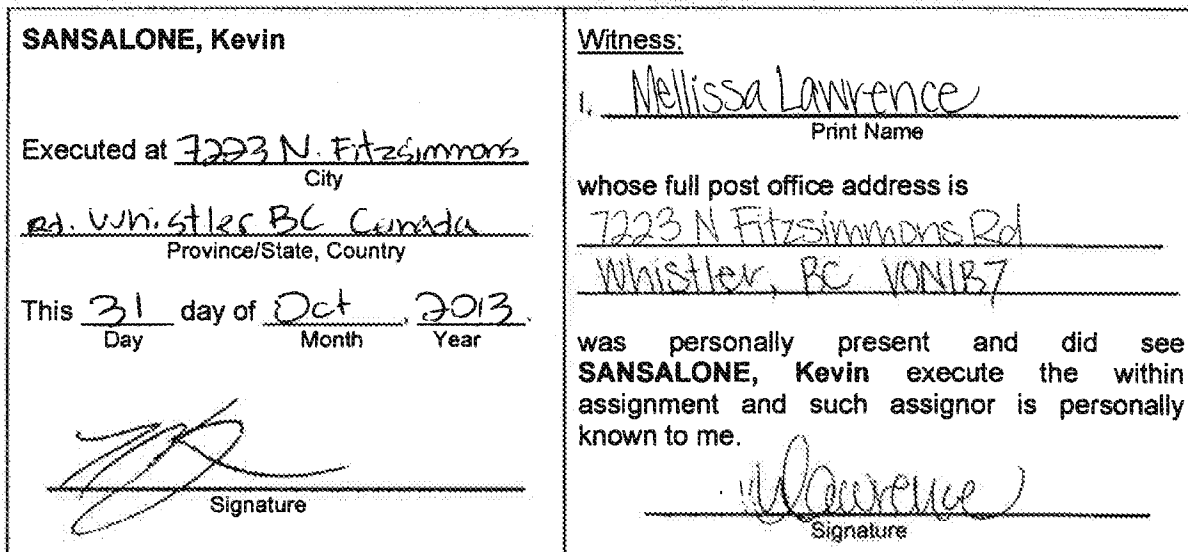 SANSALONE, Kevin
Executed at 7223 N. Fitzsimmons
City
Rd. Whistler BC Canada
Province/State, Country
This 31 day of Oct, 2013.
Day Month Year
Signature
Witness:
I, Mellissa Lawrence
Print Name
whose full post office address is
7223 N Fitzsimmons Rd
Whistler, BC V0N1B7
was personally present and did see
SANSALONE, Kevin execute the within
assignment and such assignor is personally
known to me.
MLawrence
Signature